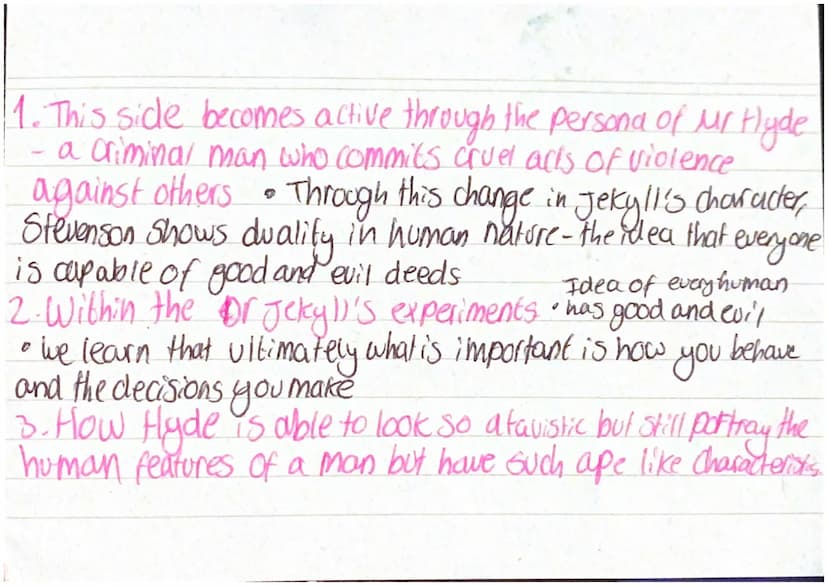 1. This side becomes active through the persona of Mr Hyde
- a criminal man who commits cruel acts of violence
against others • Through this change in Jekyll's character,
Stevenson shows duality in human nature - the idea that everyone
is capable of good and evil deeds
2. Within the Dr Jekyll's experiments • Idea of every human
has good and evil
• we learn that ultimately what is important is how you behave
and the decisions you make
3. How Hyde is able to look so atavistic but still portray the
human features of a man but have such ape like characterists.